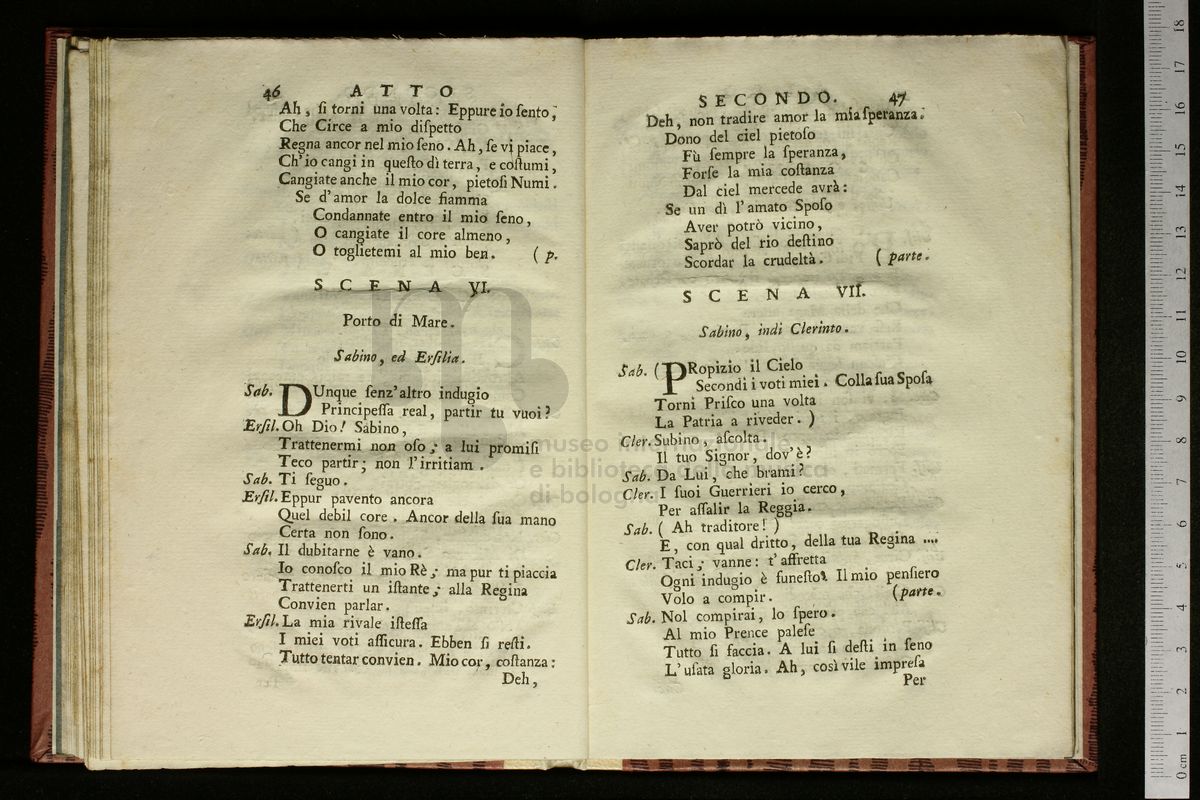 46 ATTO
Ah, ſi torni una volta: Eppure io ſento,
Che Circe a mio diſpetto
Regna ancor nel mio ſeno. Ah, ſe vi piace,
Ch'io cangi in queſto dì terra, e coſtumi,
Cangiate anche il mio cor, pietoſi Numi.
Se d'amor la dolce fiamma
Condannate entro il mio ſeno,
O cangiate il core almeno,
O toglietemi al mio ben. (p.
SCENA VI.
Porto di Mare.
Sabino, ed Erſilia.
Sab. DUnque ſenz'altro indugio
Principeſſa real, partir tu vuoi?
Erſil. Oh Dio! Sabino,
Trattenermi non oſo; a lui promiſi
Teco partir; non l'irritiam.
Sab. Ti ſeguo.
Erſil. Eppur pavento ancora
Quel debil core. Ancor della ſua mano
Certa non ſono.
Sab. Il dubitarne è vano.
Io conoſco il mio Rè; ma pur ti piaccia
Trattenerti un iſtante; alla Regina
Convien parlar.
Erſil. La mia rivale iſteſſa
I miei voti aſſicura. Ebben ſi reſti.
Tutto tentar convien. Mio cor, coſtanza:
Deh,
SECONDO. 47
Deh, non tradire amor la mia ſperanza.
Dono del ciel pietoſo
Fù ſempre la ſperanza,
Forſe la mia coſtanza
Dal ciel mercede avrà:
Se un dì l'amato Spoſo
Aver potrò vicino,
Saprò del rio deſtino
Scordar la crudeltà. (parte.
SCENA VII.
Sabino, indi Clerinto.
Sab. (PRopizio il Cielo
Secondi i voti miei. Colla ſua Spoſa
Torni Priſco una volta
La Patria a riveder.)
Cler. Subino, aſcolta.
Il tuo Signor, dov'è?
Sab. Da Lui, che brami?
Cler. I ſuoi Guerrieri io cerco,
Per aſſalir la Reggia.
Sab. (Ah traditore!)
E, con qual dritto, della tua Regina ....
Cler. Taci; vanne: t'affretta
Ogni indugio è funeſto. Il mio penſiero
Volo a compir. (parte.
Sab. Nol compirai, lo ſpero.
Al mio Prence paleſe
Tutto ſi faccia. A lui ſi deſti in ſeno
L'uſata gloria. Ah, così vile impreſa
Per
museo internazionale
e biblioteca della musica
di bologna
0 cm 1 2 3 4 5 6 7 8 9 10 11 12 13 14 15 16 17 18